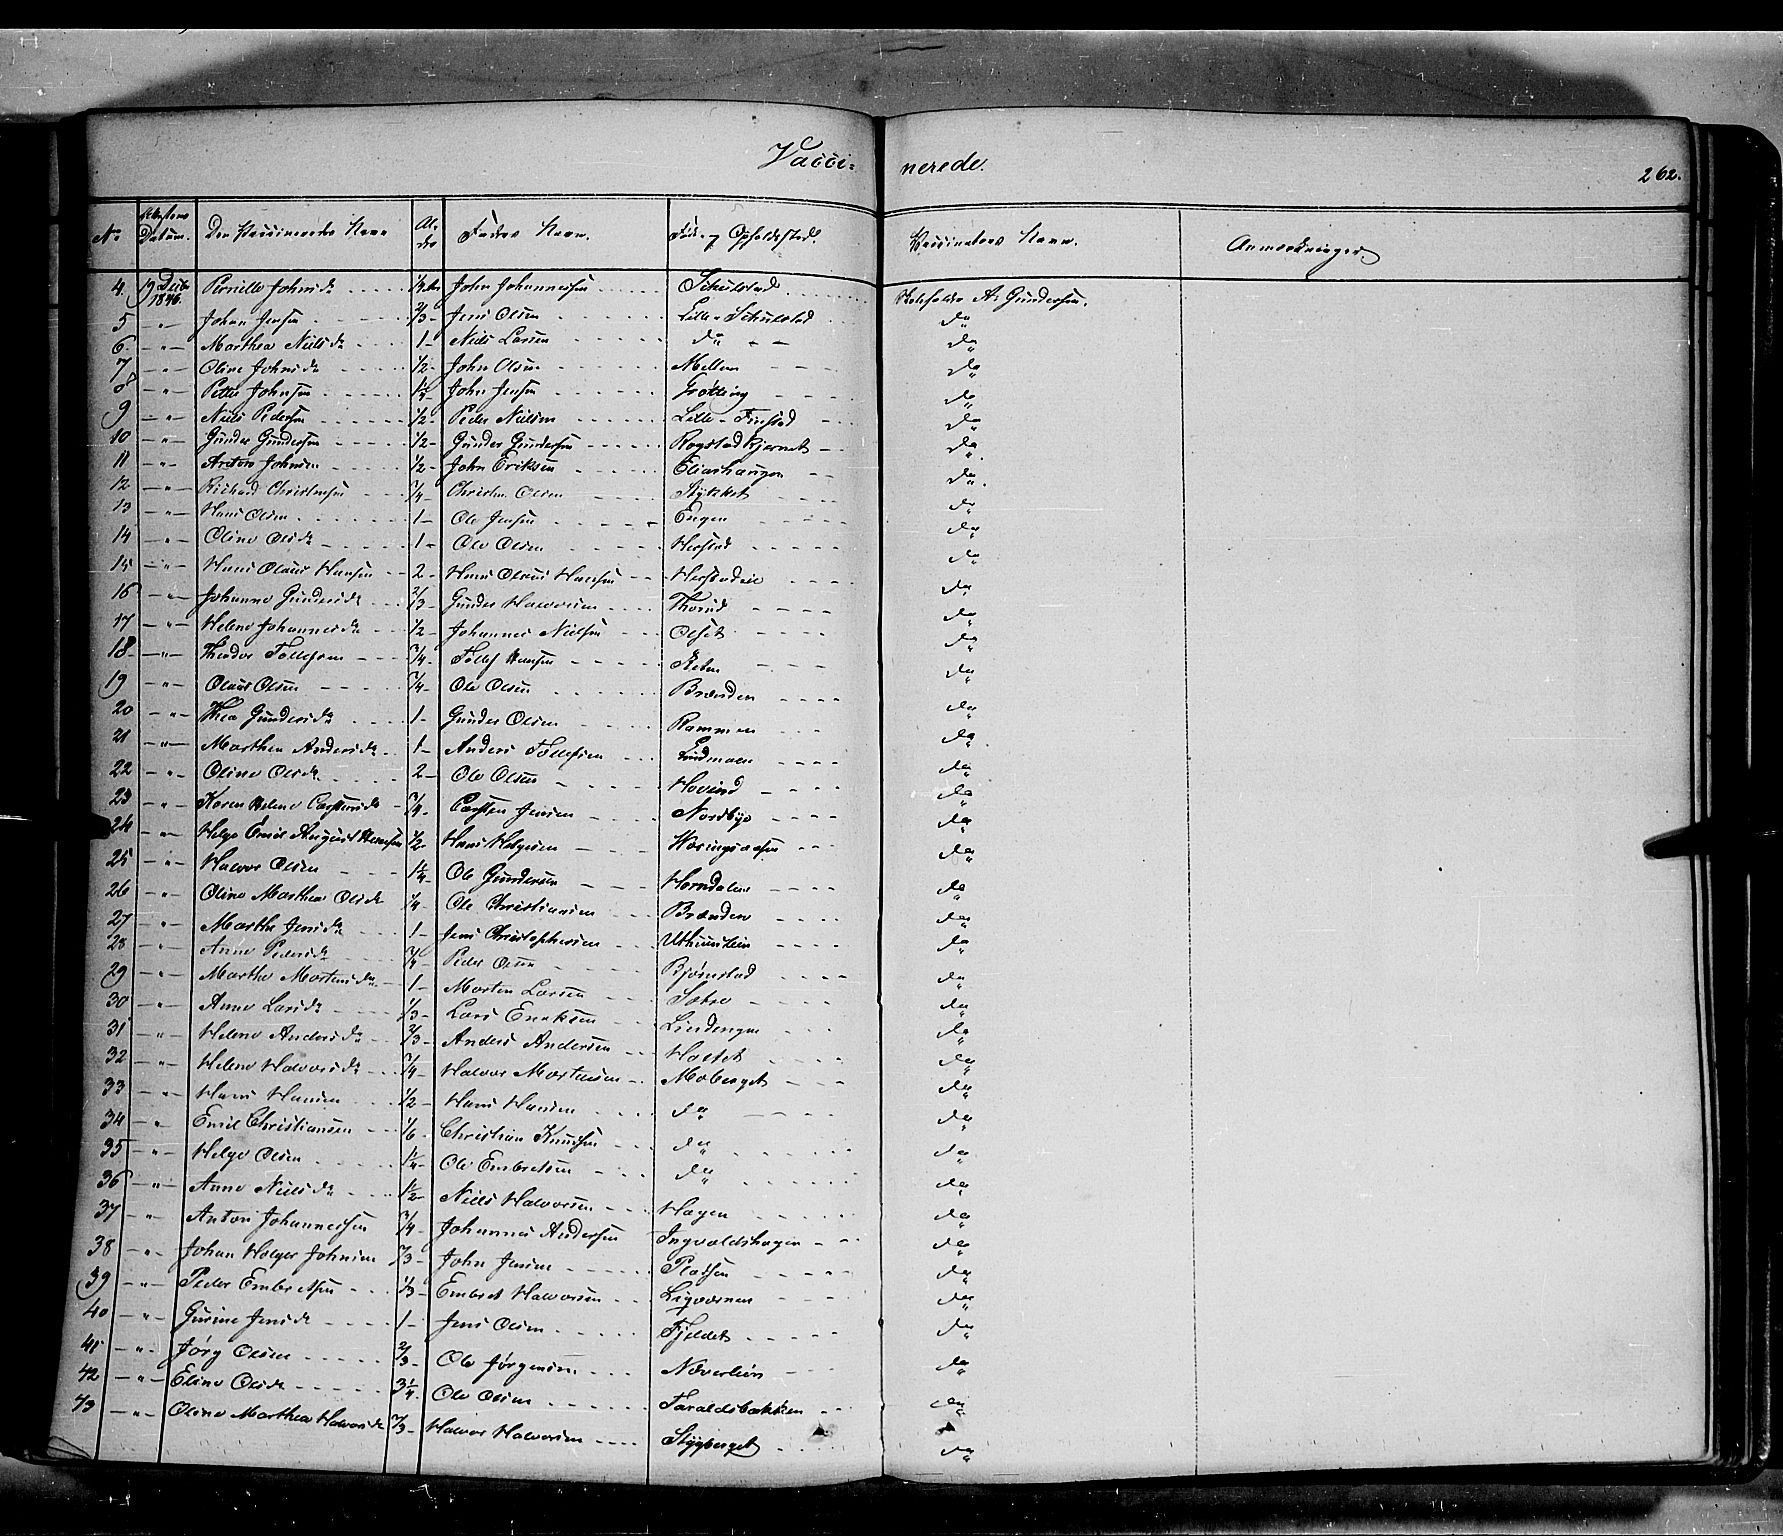 Vacci= nerede. 262.
No Attestens Datum. Den Vaccineredes Navn Alder Faders Navn. Føde- og Opholdssted. Vaccinateurs Navn. Anmærkninger
4 19 Decbr 1846. Pernille Johnsdr John Johannessen Skulstad Kokfolda A. Gundersen.
5 -"- Johan Jensen 2/3 Jens Olsen Lille-Skulstad do
6 -"- Marthea Nielsdr 1- Niels Larsen do do
7 -"- Oline Johnsdr 1/2- John Olsen Mellem do
8 -"- Petter Johnsen John Jensen Grøtting do
9 -"- Niels Pedersen 1/2- Peder Nielsen Lille-Finstad do
10 -"- Gunder Gundersen 1/2- Gunder Gundersen Rogstadkjernet do
11 -"- Anton Johnsen 1/2- John Eriksen Eliashaugen do
12 -"- Richard Christensen 3/4- Christen Olsen Stykket do
13 -"- Hans Olsen 1- Ole Jensen Engen do
14 -"- Oline Olsdr 1- Ole Olsen Herstad do
15 -"- Hans Olaus Hansen 2- Hans Olaus Hansen Herstadeie do
16 -"- Johanne Gundersdr 2/3- Gunder Halvorsen Thorud do
17 -"- Helene Johannesdr 1/2- Johannes Nielsen Olset do
18 -"- Theodor Tollefsen 3/4- Tollef Hansen do
19 -"- Olaus Olsen 3/4- Ole Olsen Brænden do
20 -"- Thea Gundersdr 1- Gunder Olsen Rammen do
21 -"- Marthea Andersdr 1- Anders Tollefsen Lindmoen do
22 -"- Oline Olsdr 2- Ole Olsen Hovind do
23 -"- Karen Helene Carstensdr 3/4- Carsten Jensen Nordbye do
24 -"- Helge Emil August Hansen 1/2- Hans Helgesen Kosingsaasen do
25 -"- Halvor Olsen 1 1/4- Ole Gundersen Horndalen do
26 -"- Oline Marthea Olsdr 1/4- Ole Christiansen Brænden do
27 -"- Marthe Jensdr 1- Jens Christophersen Uthuuslien do
28 -"- Anne Pedersdr 3/4- Peder Olsen Bjørnstad do
29 -"- Marthe Mortensdr 1- Morten Larsen Sætre do
30 -"- Anne Larsdr 1/3- Lars Eriksen Lindengen do
31 -"- Helene Andersdr 2/3- Anders Andersen Holtet do
32 -"- Helene Halvorsdr 3/4- Halvor Mortensen Moberget do
33 -"- Hans Hansen 1/2- Hans Hansen do do
34 -"- Emil Christiansen 1/6- Christian Knudsen do do
35 -"- Helge Olsen 1/4- Ole Embretsen do do
36 -"- Anne Nielsdr 1/2- Niels Halvorsen Hagen do
37 -"- Anton Johannessen 3/4- Johannes Andersen Ingvaldshagen do
38 -"- Johan Holger Johnsen 2/3- John Jensen Pladsen do
39 -"- Peder Embretsen 1/3- Embret Halvorsen Ligværnen do
40 -"- Gurine Jensdr 1- Jens Olsen Fjeldet do
41 -"- Jørg Olsen 2/3- Ole Jørgensen Næverlien do
42 -"- Eline Olsdr 3 1/4- Ole Olsen Taraldsbækken do
43 -"- Oline Marthea Halvorsdr 2/3- Halvor Halvorsen Stygberget do